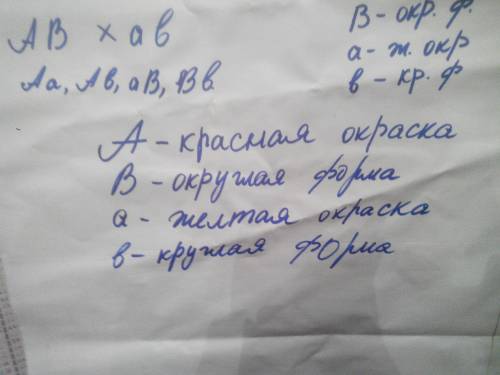 В - окр. ф.
АВ × ав
а - ж. окр
Аа, Ав, аВ, Вв
в - кр. ф
А - красная окраска
В - округлая форма
а - желтая окраска
в - круглая форма